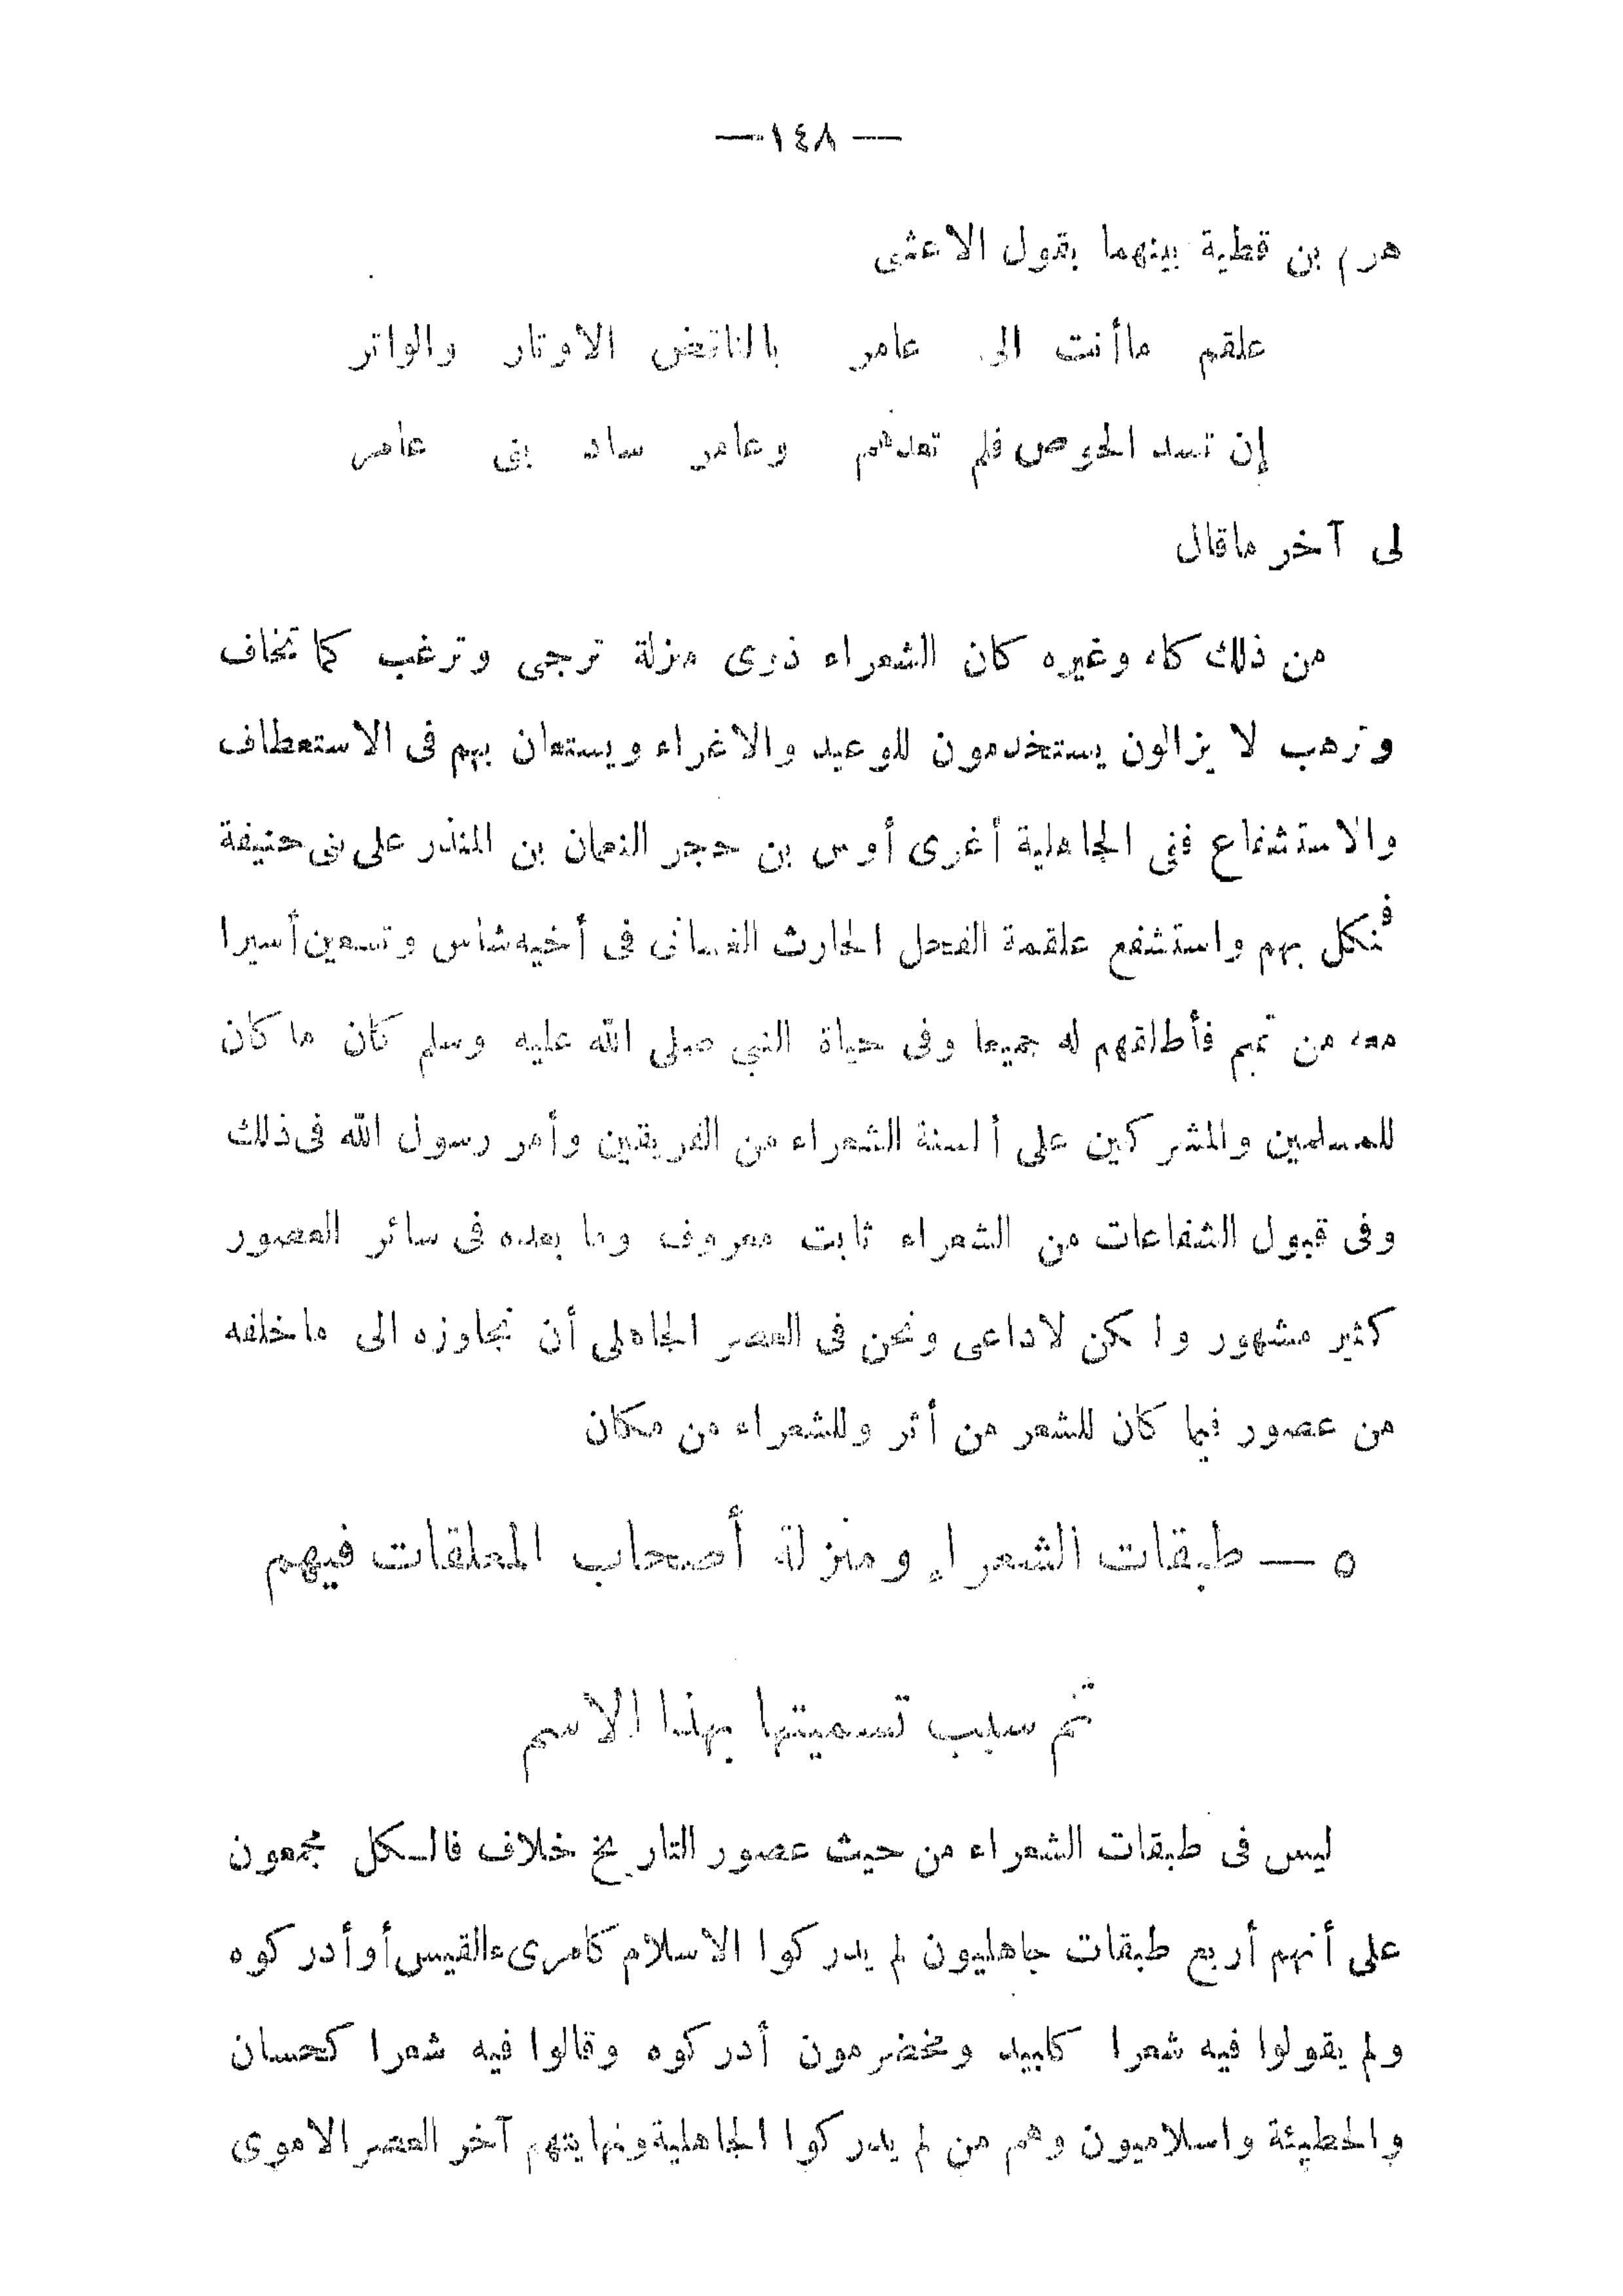 — ١٤٨ —
هرم بن قطية بينهما بقول الاعشى
علقم ماأنت الى عامر بالناقض الاوتار والواتر
إن تسد الحوص فلم تعدهم وعامر ساد بنى عامر
لى آخر ماقال
من ذلك كله وغيره كان الشعراء ذوى منزلة ترجى وترغب كما تخاف
وترهب لا يزالون يستخدمون للوعيد والاغراء ويستعان بهم فى الاستعطاف
والاستشفاع ففى الجاهلية أغرى أوس بن حجر النعمان بن المنذر على بنى حنيفة
فنكل بهم واستشفع علقمة الفحل الحارث الغسانى فى أخيه شاس وتسعين أسيرا
معه من تميم فأطلقهم له جميعا وفى حياة النبى صلى الله عليه وسلم كان ما كان
للمسلمين والمشركين على ألسنة الشعراء من الفريقين وأمر رسول الله فى ذلك
وفى قبول الشفاعات من الشعراء ثابت معروف وما بعده فى سائر العصور
كثير مشهور ولكن لاداعى ونحن فى العصر الجاهلى أن نجاوزه الى ماخلفه
من عصور فيما كان للشعر من أثر وللشعراء من مكان
٥ — طبقات الشعراء ومنزلة أصحاب المعلقات فيهم
ثم سبب تسميتها بهذا الاسم
ليس فى طبقات الشعراء من حيث عصور التاريخ خلاف فالكل مجمعون
على أنهم أربع طبقات جاهليون لم يدركوا الاسلام كامرىء القيس أو أدركوه
ولم يقولوا فيه شعرا كلبيد ومخضرمون أدركوه وقالوا فيه شعرا كحسان
والحطيئة واسلاميون وهم من لم يدركوا الجاهلية ونهايتهم آخر العصر الاموى